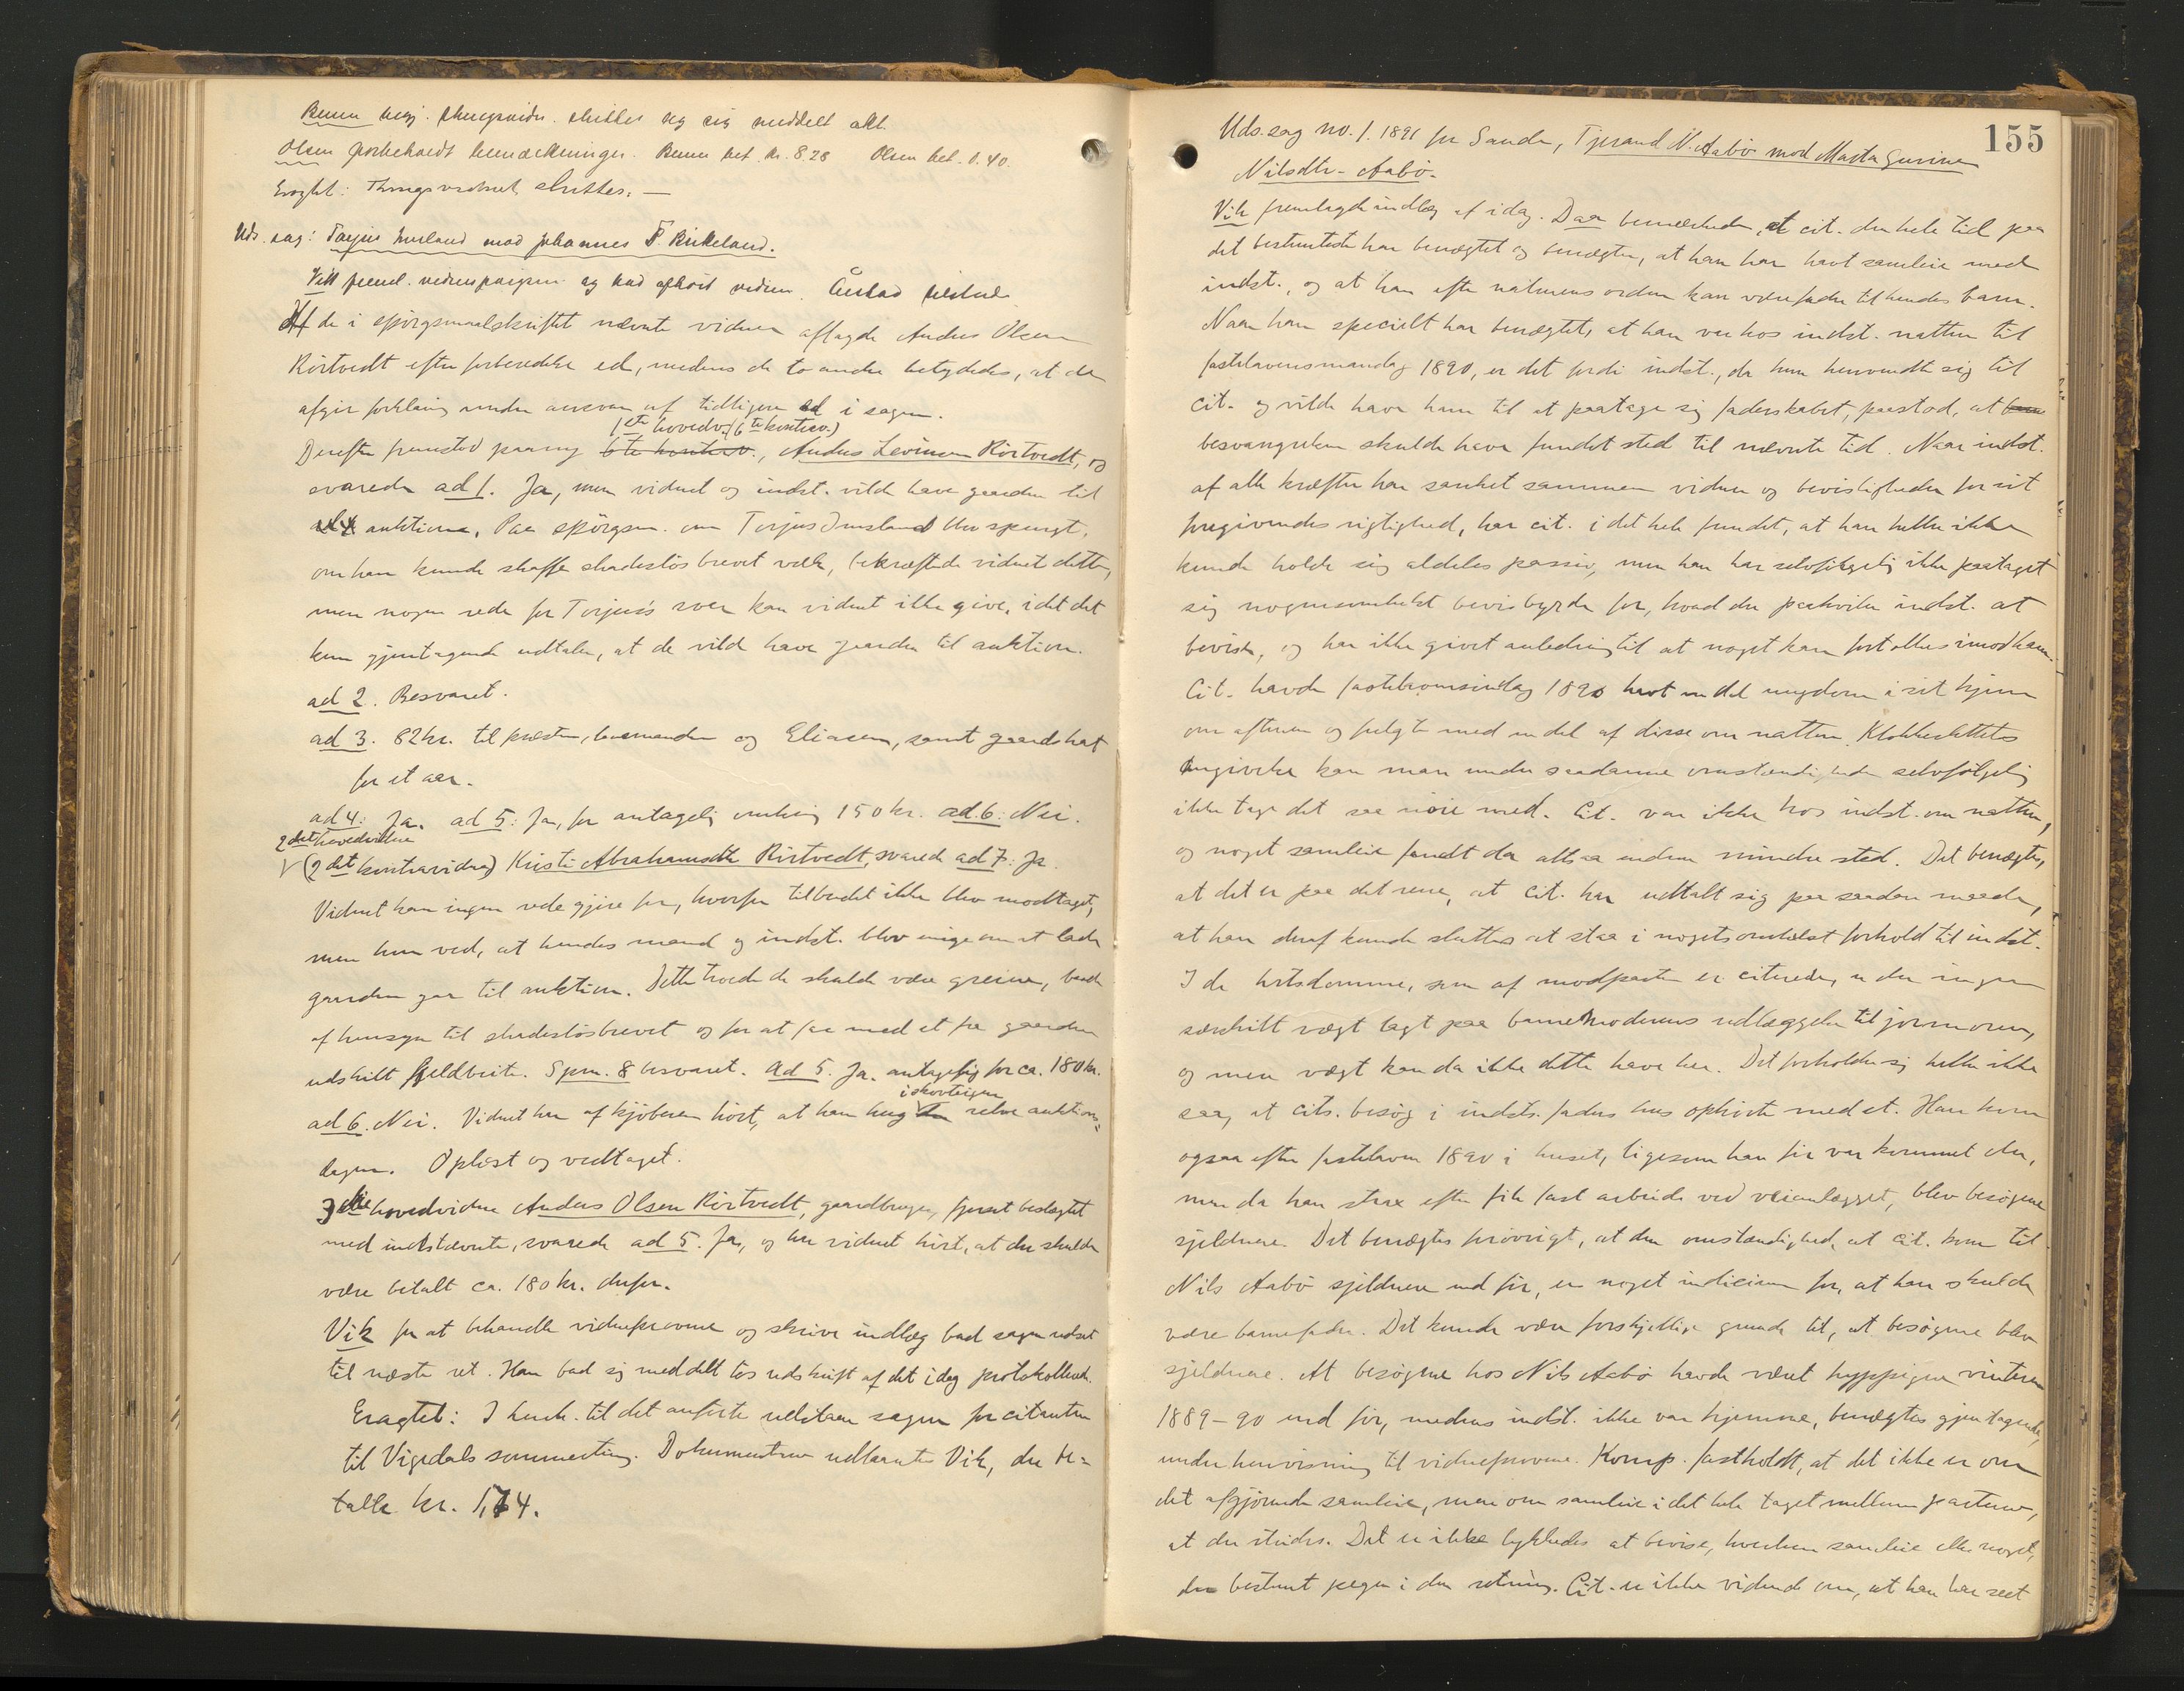 Benen begj. thingsvidn. sluttet og sig meddelt akt.
Olsen forbeholdt bemærkninger. Benen bet. kr. 8.28 Olsen bet. 0.40.
Eragtet: Thingsvidnet sluttes. —
Uds. sag: Torjus Imsland mod Johannes T. Birkeland.
Vik freml. og bad afhørt vidner. Åustad tilstede
Af de i spörgsmaalskriftet nævnte vidner aflagde Andres Olsen
Rörtvedt efter forberedelse ed, medens de to andre betydedes, at de
afgir forklaring under ansvar af tidligere ed i sagen.
1ste hovedv. (6te kontrav.)
Derefter fremstod paany 6te kontrav., Andres Levinsen Rörtvedt, og
svarede ad 1. Ja, men vidnet og indst. vilde have gaarden til
auktion. Paa spörgsm. om Torjus Imsland blev spurgt,
om han kunde skaffe skadeslösbrevet væk, bekræftede vidnet dette,
men nogen rede for Torjus's svar kan vidnet ikke give, idet det
kun gjentagende udtaler, at de vilde have gaarden til auktion.
ad 2. Besvaret.
ad 3. 82 kr. til præsten, lensmanden og Eliasen, samt gaardskat
for et aar.
ad 4: Ja. ad 5: Ja, for antagelig omkring 150 kr. ad 6: Nei.
2det hovedvidne
(2det kontravidne) Kristi Abrahamsdtr Rörtvedt, svarede ad 7: Ja.
Vidnet kan ingen rede gjöre for, hvorfor tilbudet ikke blev modtaget,
men hun ved, at hendes mand og indst. blev enige om at lade
gaarden gaa til auktion. Dette troede de skulde være greiere, baade
af hensyn til skadeslösbrevet og for at faa med et fra gaarden
udskilt fjeldbeite. Spm. 8 besvaret. Ad 5. Ja. antagelig for ca. 180 kr.
i skovteigen
ad 6. Nei. Vidnet har af kjöberen hört, at han hug selve auktions-
dagen. Oplæst og vedtaget.
3die hovedvidne Anders Olsen Rörtvedt, gaardbruger, fjernt beslægtet
med indstævnte, svarede ad 5. Ja, og har vidnet hört, at der skulde
være betalt ca. 180 kr. derfor.
Vik for at behandle vidneprovene og skrive indlæg bad sagen udsat
til næste ret. Han bad sig meddelt lös udskrift af det idag protokollerede.
Eragtet: I henh. til det anförte udstaar sagen for citanten
til Vigedals sommerting. Dokumenterne udlaantes Vik, der be-
talte kr. 1,74.
155
Uds. sag no. 1. 1891 fra Sande, Tjerand N. Aabö mod Marta Gurine
Nilsdtr. Aabö.
Vik fremlagde indlæg af idag. Daa bemærkede, at cit. den hele tid paa
det bestemteste har benægtet og benægter, at han har havt samleie med
indst., og at han efter naturens orden kan være fader til hendes barn.
Naar han specielt har benægtet, at han var hos indst. natten til
fastelavensmandag 1890, er det fordi indst., da hun henvendte sig til
cit. og vilde have ham til at paatage sig faderskabet, paastod, at
besvangrelsen skulde have fundet sted til nævnte tid. Naar indst.
af alle kræfter har sanket sammen vidner og bevisligheder for sit
foregivendes rigtighed, har cit. i det hele fundet, at han heller ikke
kunde holde sig aldeles passiv, men han har selvfölgelig ikke paataget
sig nogensomhelst bevisbyrde for, hvad der paahviler indst. at
bevise, og har ikke givet anledning til at noget kan fortolkes imod ham.
Cit. havde fastelavnssöndag 1890 havt en del ungdom i sit hjem
om aftenen og fulgte med en del af disse om natten. Klokkeslettets
angivelse kan man under saadanne omstændigheder selvfölgelig
ikke tage det saa nöie med. Cit. var ikke hos indst. om natten,
og noget samleie fandt da altsaa endnu mindre sted. Det benægtes,
at det er paa det rene, at cit. har udtalt sig paa saadan maade,
at han deraf kunde sluttes at staa i nogetsomhelst forhold til indst.
I de hrtsdomme, som af modparten er citerede, er der ingen
særskilt vægt lagt paa barnemoderens udlæggelse til jormoren,
og mere vægt kan da ikke dette have her. Det forholder sig heller ikke
saa, at cits. besög i indsts. faders hus ophörte med et. Han kom
ogsaa efter fastelavn 1890 i huset, ligesom han för var kommet der,
men da han strax efter fik fast arbeide ved veianlægget, blev besögene
sjeldnere. Det benægtes forövrigt, at den omstændighed, at cit. kom til
Nils Aabö sjeldnere end för, er noget indicium for, at han skulde
være barnefader. Det kunde være forskjellige grunde til, at besögene blev
sjeldnere. At besögene hos Nils Aabö havde været hyppigere vinteren
1889-90 end för, medens indst. ikke var hjemme, benægtes gjentagende,
under henvisning til vidneprovene. Komp. fastholdt, at det ikke er om
det afgjörende samleie, men om samleie i det hele taget mellem parterne,
at der strides. Det er ikke lykkedes at bevise, hverken samleie eller noget,
der bestemt peger i den retning. Cit. er ikke vidende om, at han har seet